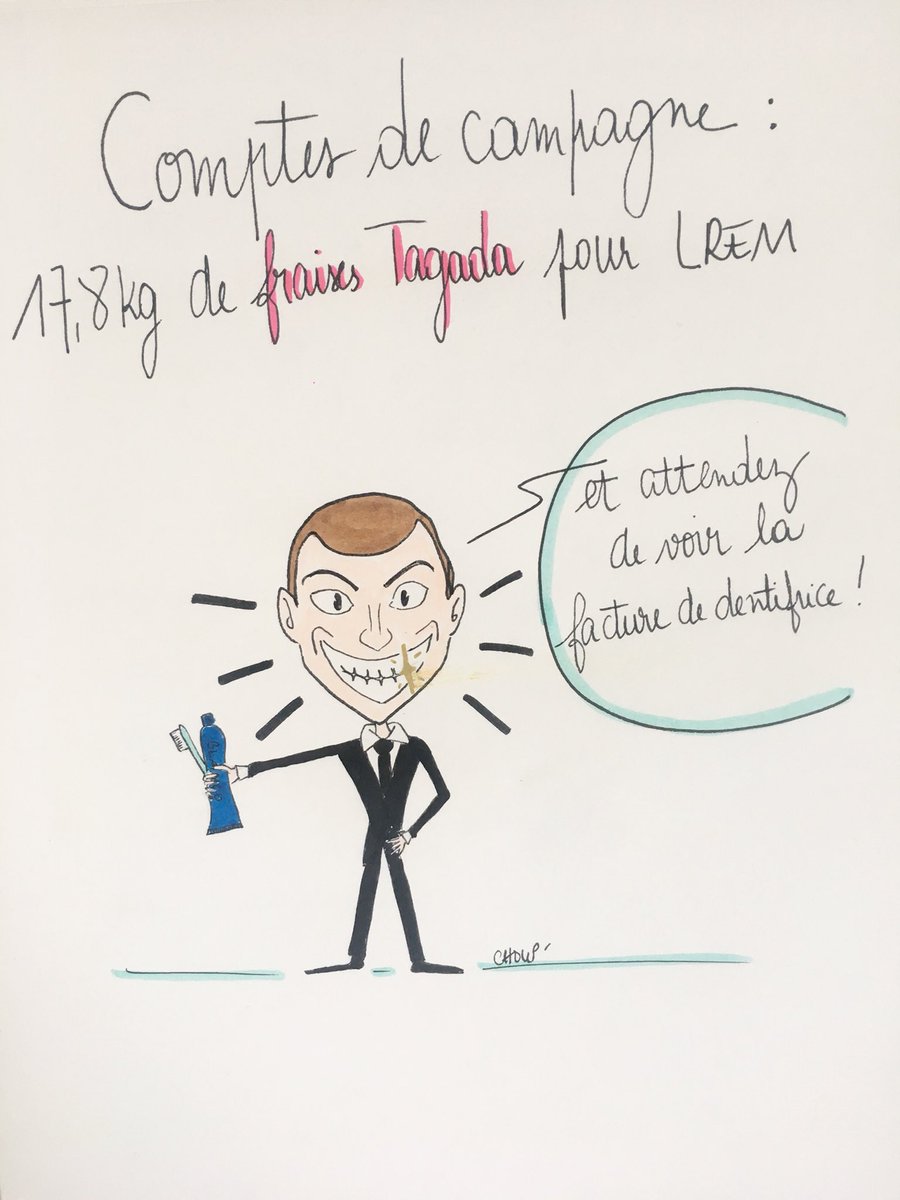 Comptes de campagne :
17,8kg de fraises Tagada pour LREM
et attendez
de voir la
facture de dentifrice !
CHOUP'